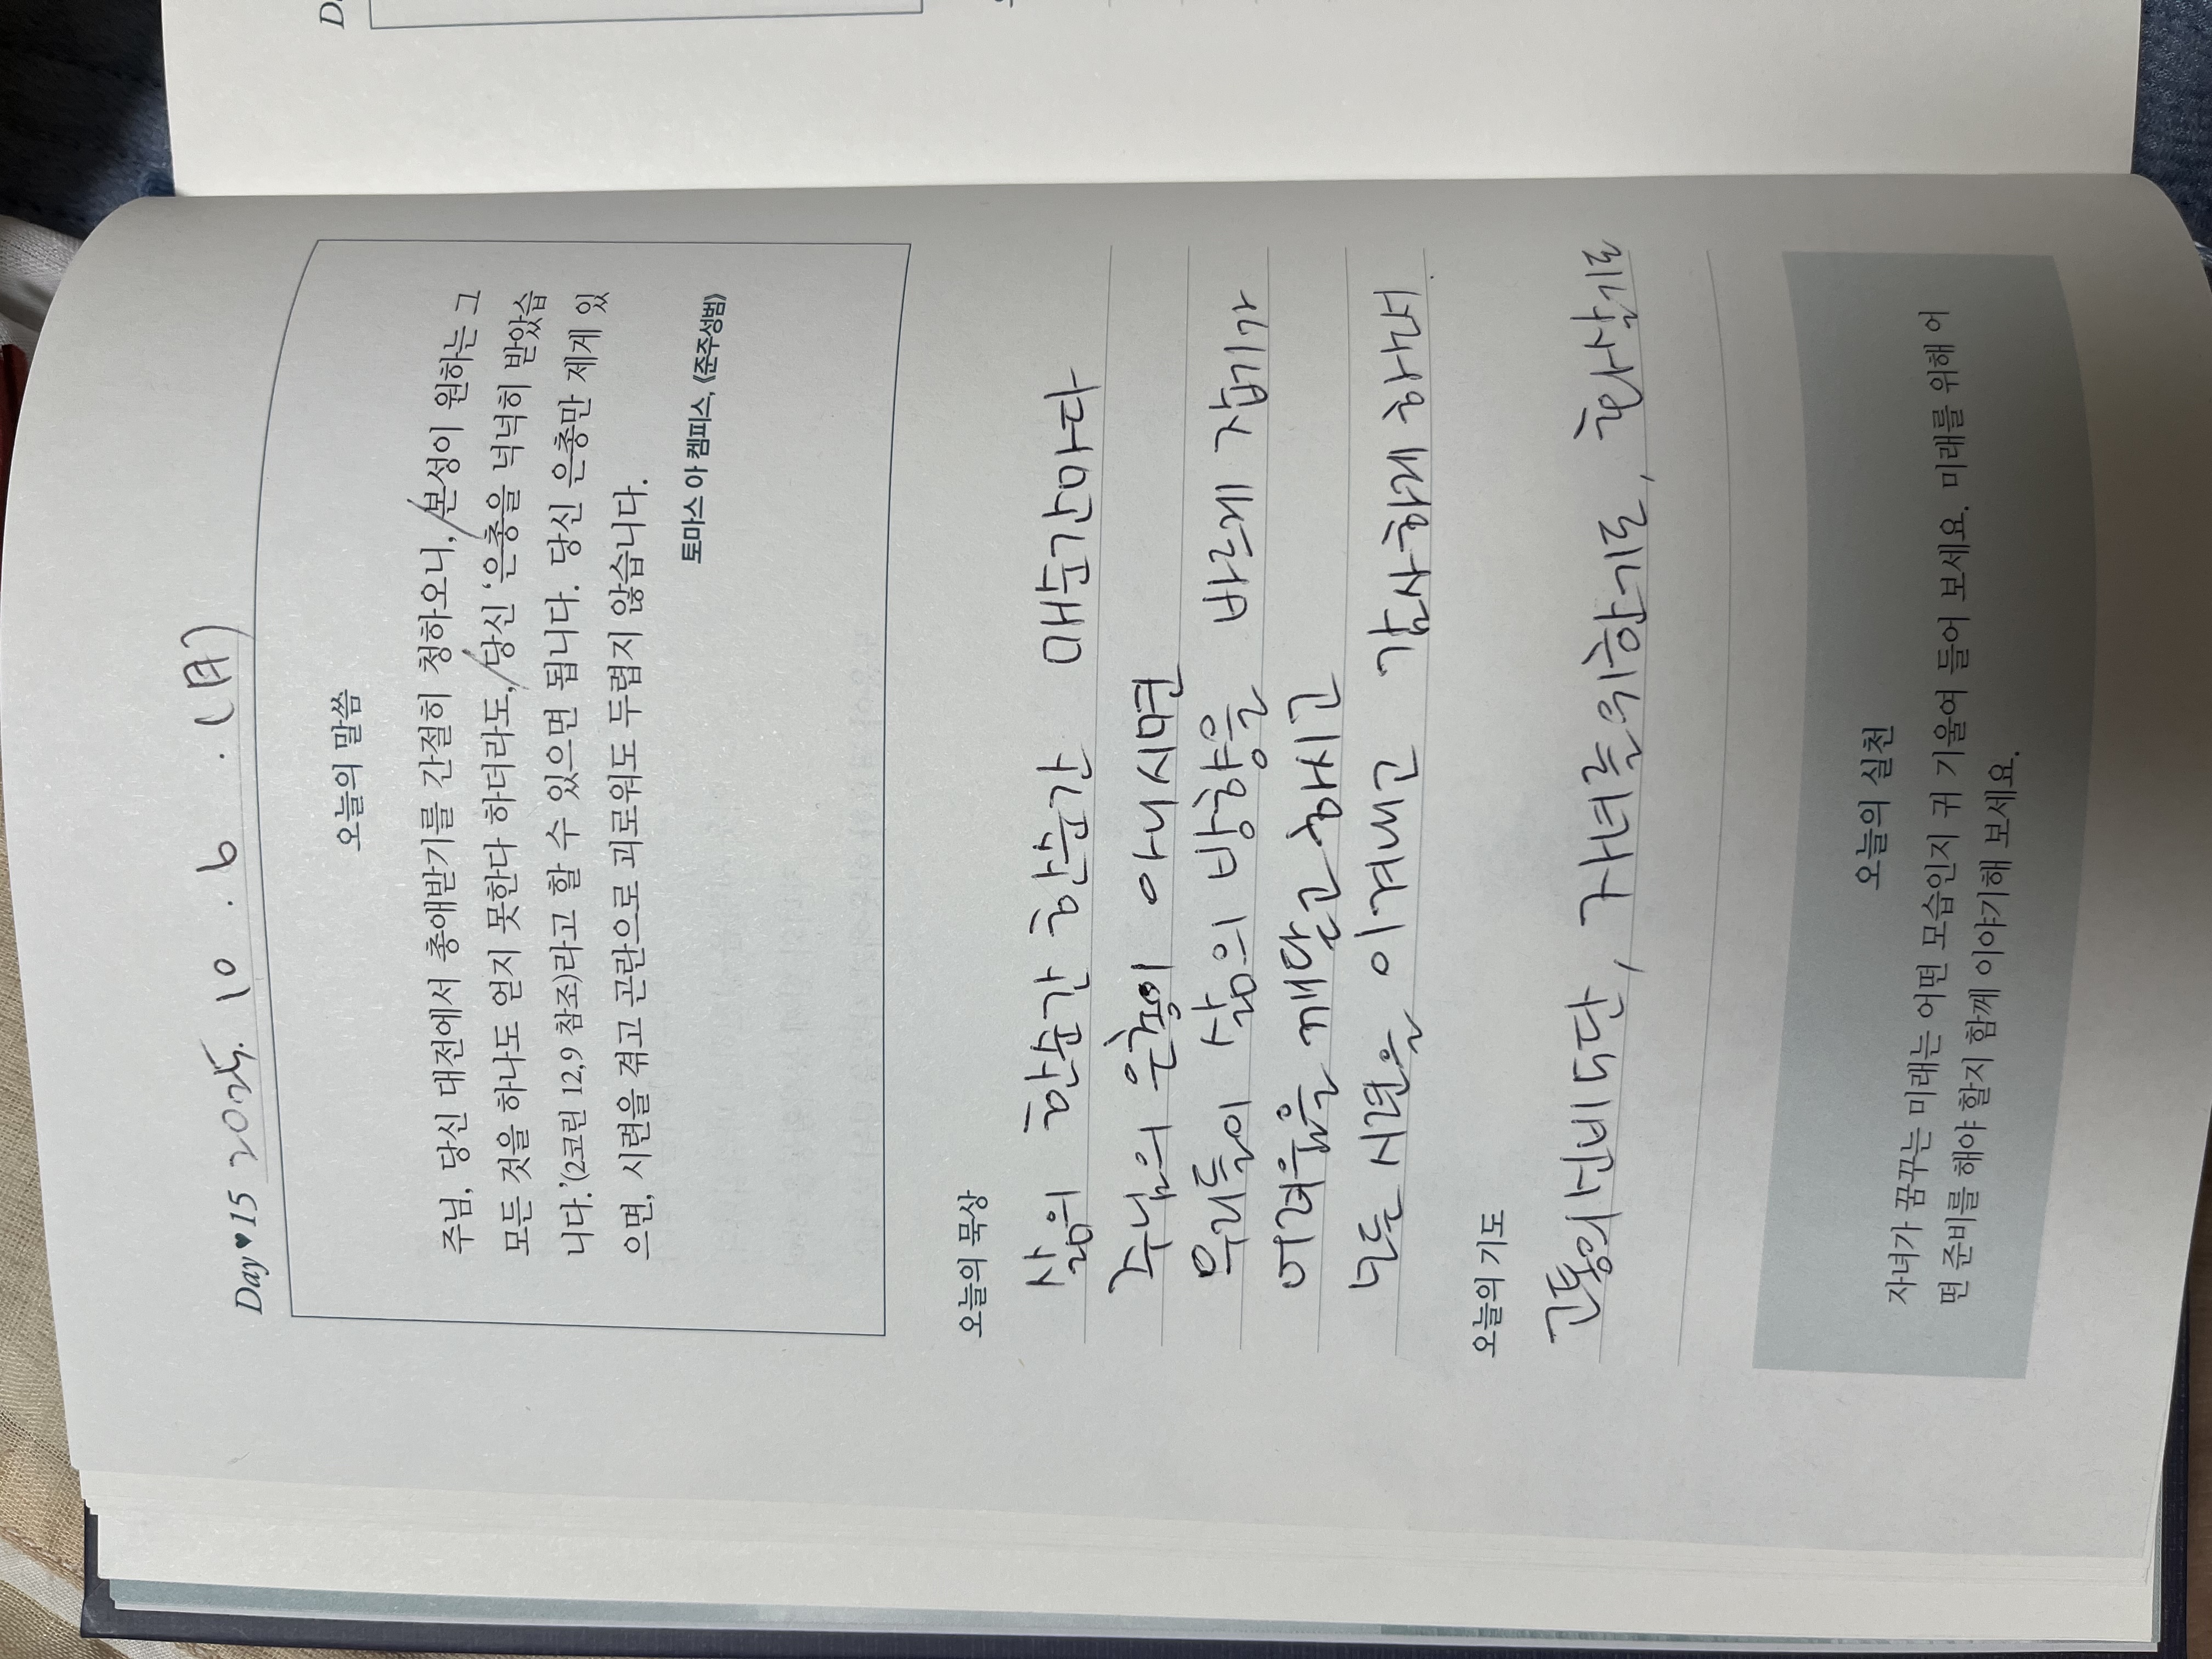 Day♥15 2025. 10 . 6 . (月)
오늘의 말씀
주님, 당신 대전에서 총애받기를 간절히 청하오니, 본성이 원하는 그
모든 것을 하나도 얻지 못한다 하더라도, 당신 ‘은총을 넉넉히 받았습
니다.’(2코린 12,9 참조)라고 할 수 있으면 됩니다. 당신 은총만 제게 있
으면, 시련을 겪고 곤란으로 괴로워도 두렵지 않습니다.
토마스 아 켐피스, 《준주성범》
오늘의 묵상
삶의 한순간 한순간 매순간마다
주님의 은총이 아니시면
우리들이 삶의 방향을 바르게 잡기가
어려움을 깨닫고 하시고
모든 시련을 이겨내고 감사하게 하소서
오늘의 기도
고통의 신비 다단, 자녀를 위한 기도, 화살기도
오늘의 실천
자녀가 꿈꾸는 미래는 어떤 모습인지 귀 기울여 들어 보세요. 미래를 위해 어
떤 준비를 해야 할지 함께 이야기해 보세요.